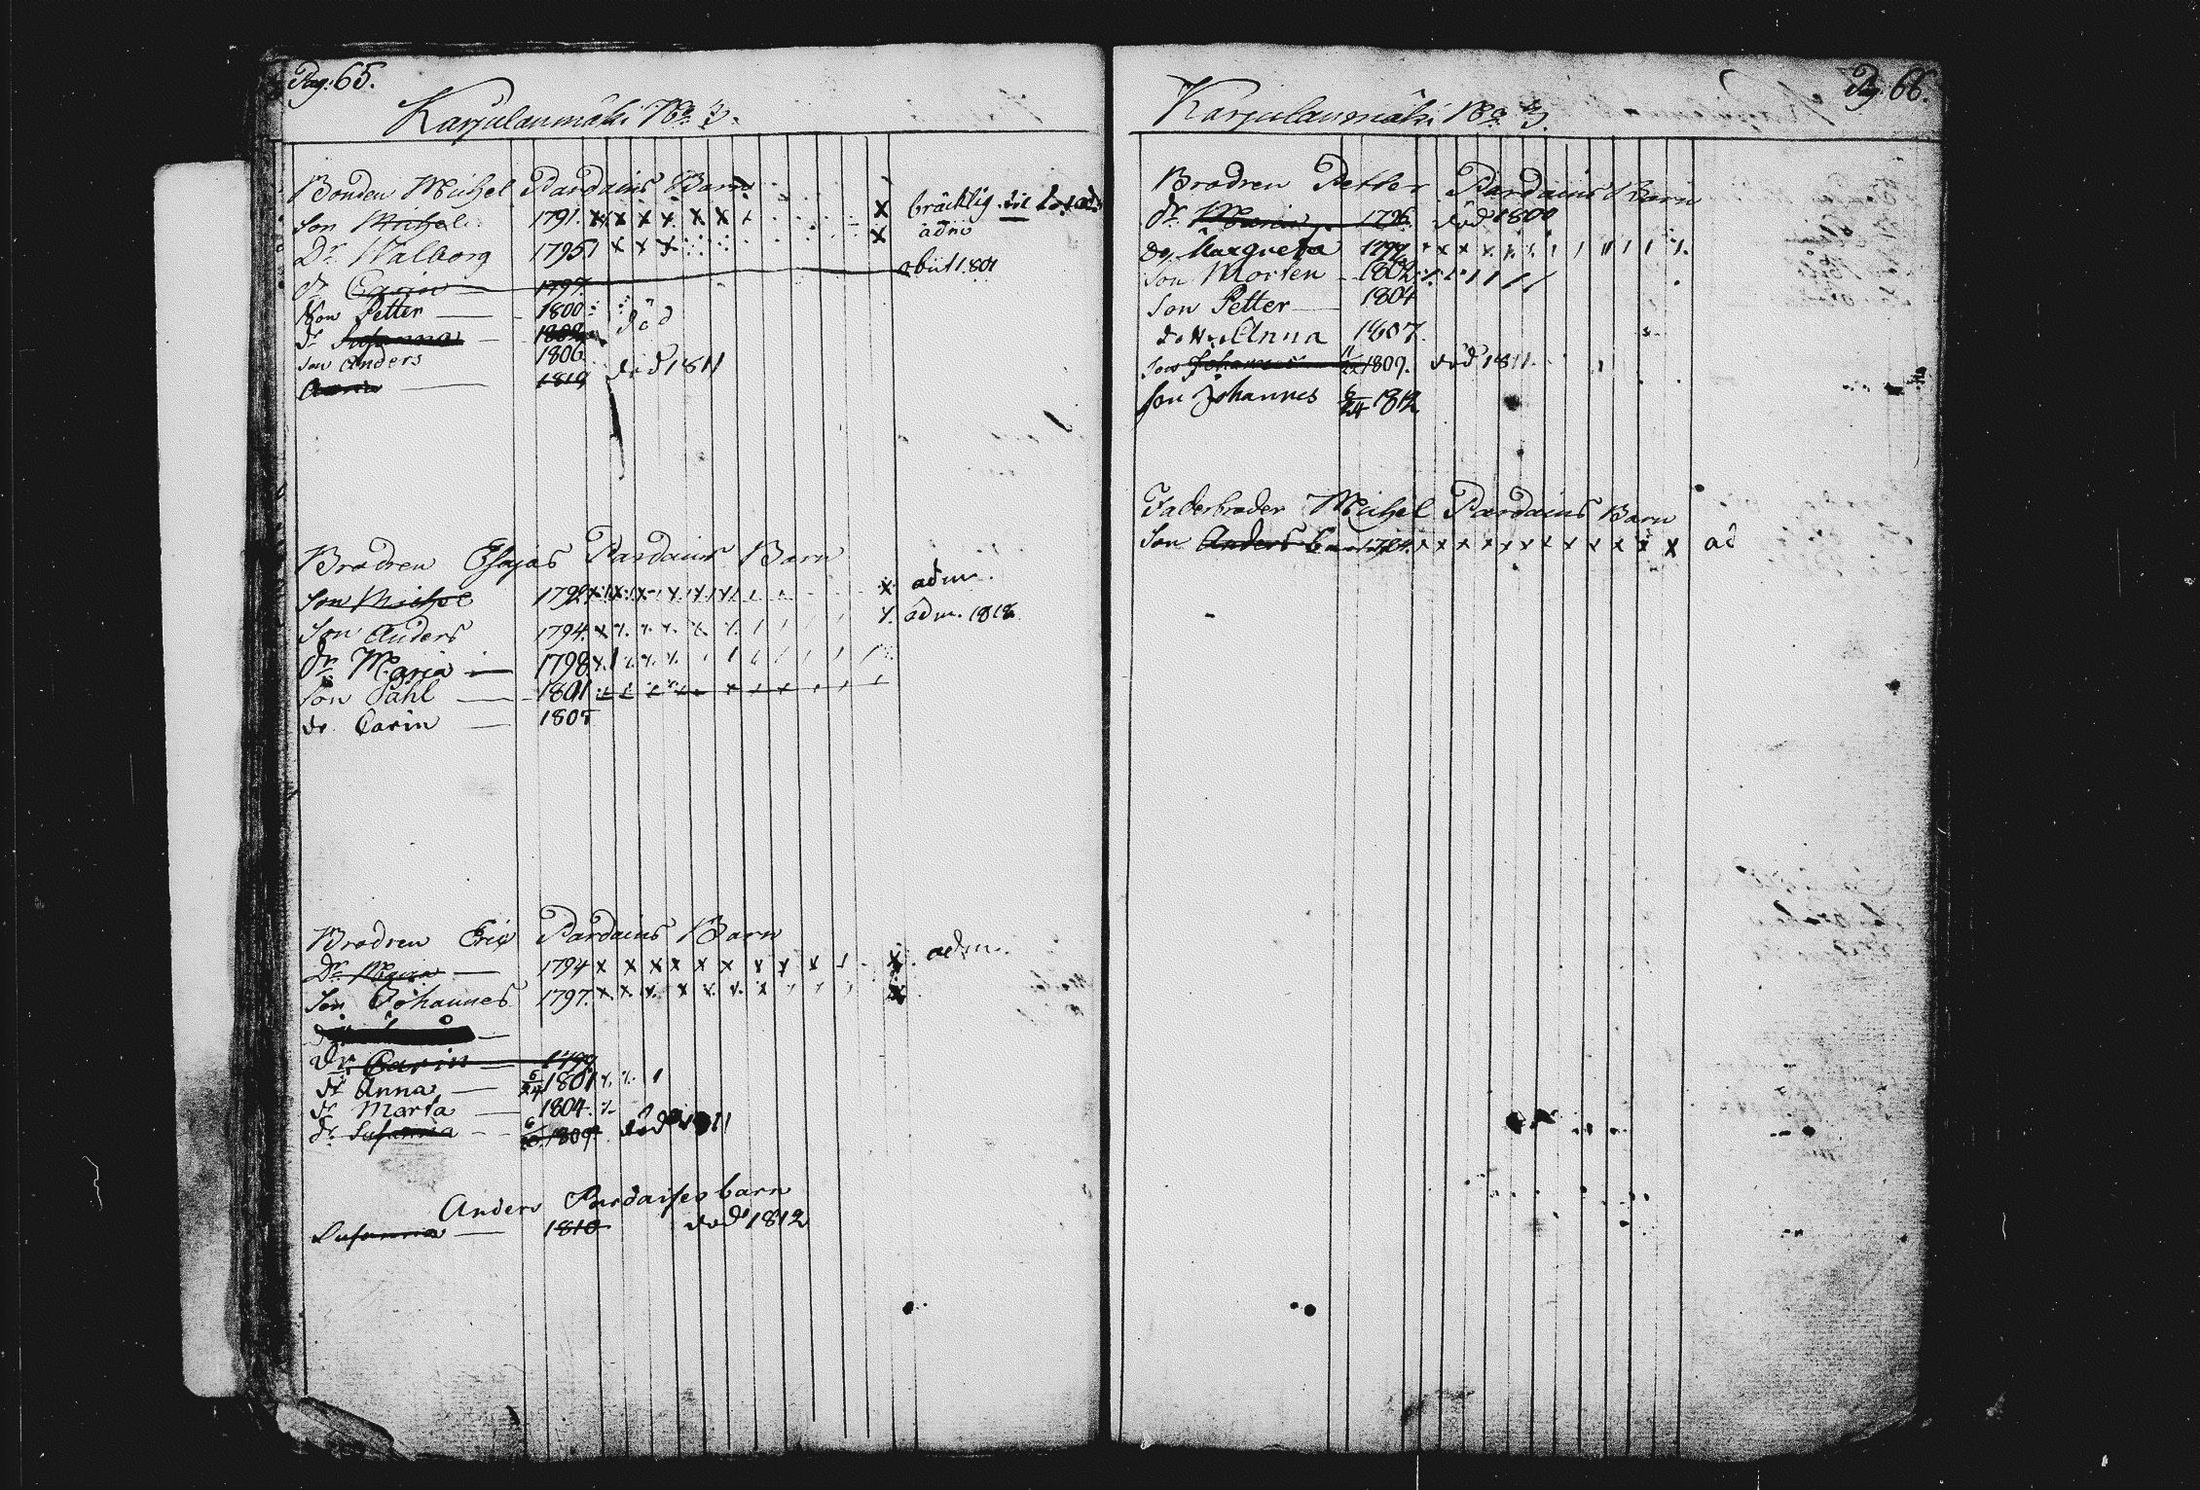 Pag. 65.
Karjulanmäki No 3.
Bonden Michel Pardains Barn
Son Michel 1791. x x x x x x x bräcklig
Dr. Walborg 1795 x x x x adm
dr Carin 1797. obiit 1801
Son Petter 1800
dr Susanna 1802 död
Son Anders 1806
Anna 1810 död 1811
Brodren Esajas Pardains Barn
Son Michel 1792 x x x x x x x adm.
Son Anders 1794. x x x x x x x adm. 1818
dr Maria 1798
Son Påhl 1801
dr. Carin 1805
Brodren Eric Pardains Barn
Dr. Maria 1794 x x x x x x x x x x adm.
Son Johannes 1797. x x x x x x x x
Dr Carin 1799
dr Anna 6/24 1801
dr Marta 1804.
dr. Susanna 1809 död 1811
Anders Pardaises barn
Susanna 1810 död 1812
Pag. 66.
Karjulanmäki No 3.
Brodren Petter Pardains Barn
dr. Maria 1796. död 1800
dr. Margueta 1799
Son Morten 1802
Son Petter 1804
dotter Anna 1807.
Son Johannes 11/22 1809. död 1811.
Son Johannes 6/24 1812
Faderbroder Michel Pardains Barn
Son Anders 1784. x x x x x x x x x x x x ad